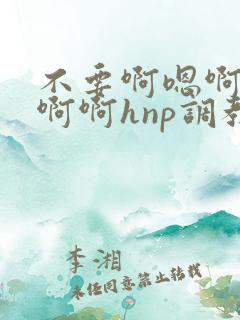 不要啊嗯啊
啊啊hnp調教
李湘
未经同意禁止转载